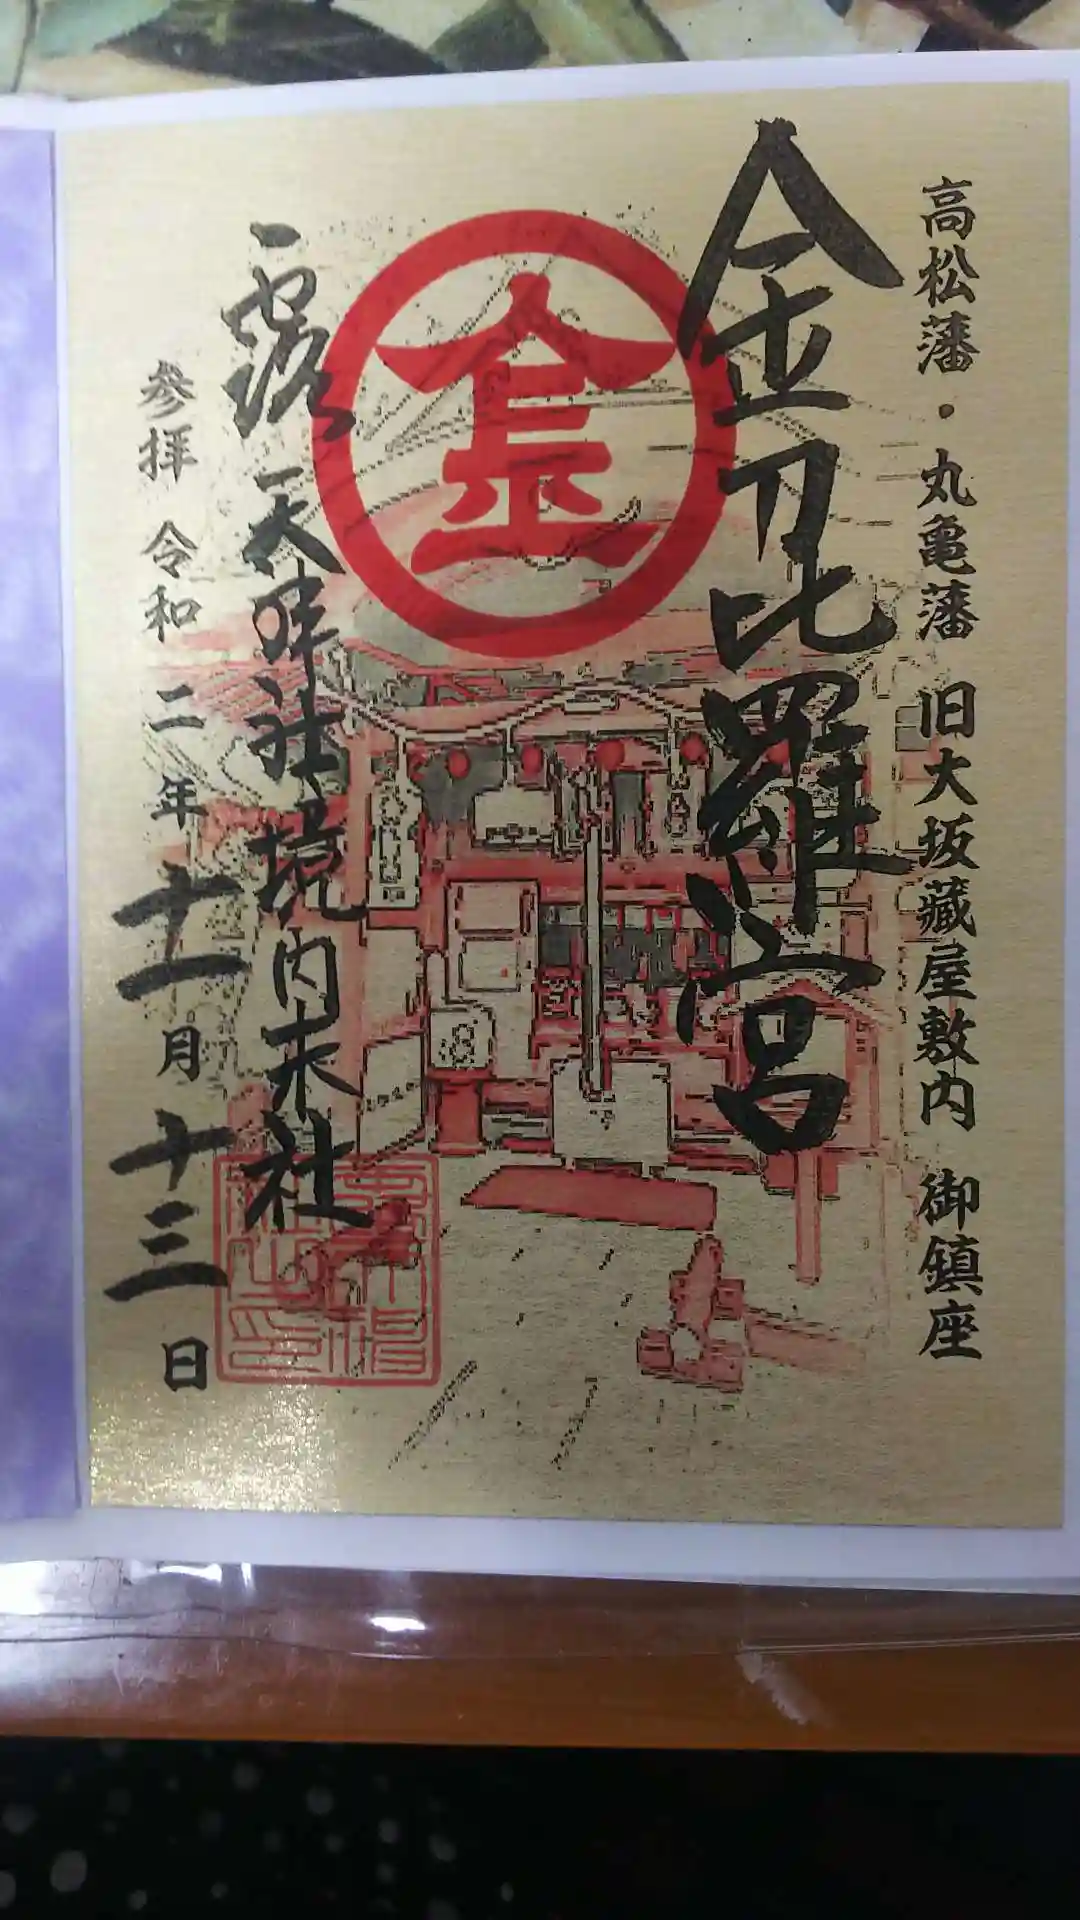 高松藩・丸亀藩 旧大坂蔵屋敷内 御鎮座
金刀比羅宮
金
露天神社境内末社
参拝 令和二年十一月十三日